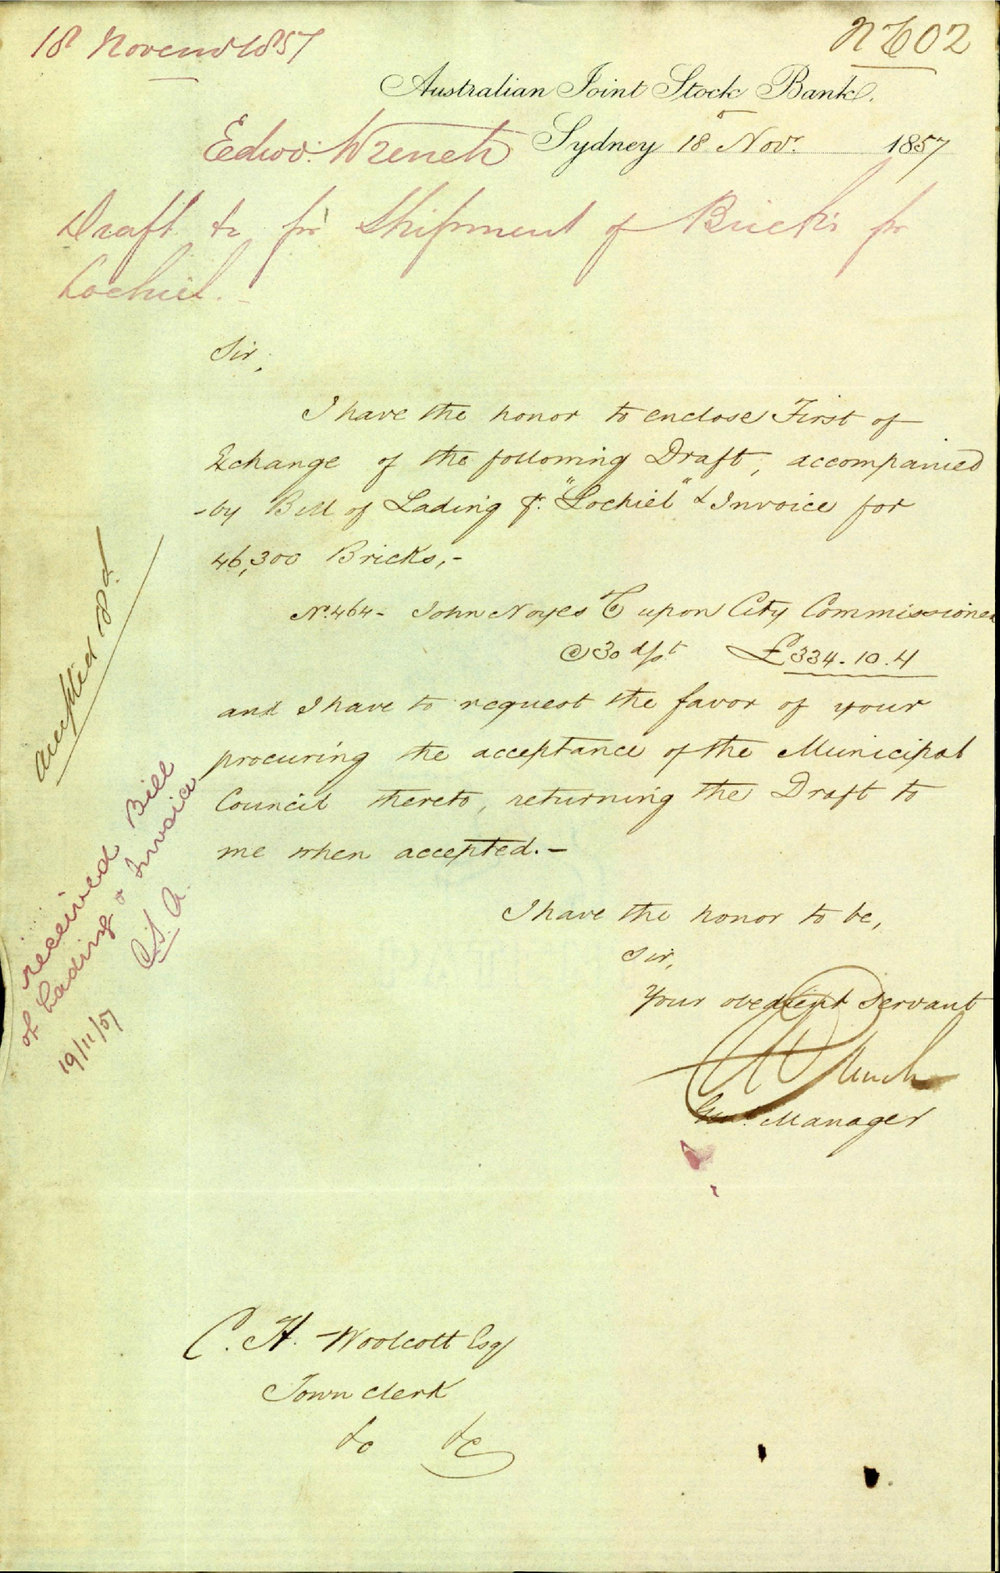 18 Novemr 1857
No 602
Australian Joint Stock Bank.
Sydney 18 Novr. 1857
Edwd. Wrench
Draft &c for Shipment of Bricks pr
Lochiel.
Sir,
I have the honor to enclose First of
Exchange of the following Draft, accompanied
by Bill of Lading p. "Lochiel" & Invoice for
46,300 Bricks,-
No. 464 - John Noyes upon City Commissioners
@ 30 d/st £334.10.4
and I have to request the favor of your
procuring the acceptance of the Municipal
Council thereto, returning the Draft to
me when accepted.-
I have the honor to be,
Sir,
Your obedient Servant
Wrench
Manager
accepted 18
received Bill
of Lading & Invoice
19/11/57
C. H. Woolcott Esq
Town Clerk
&c &c